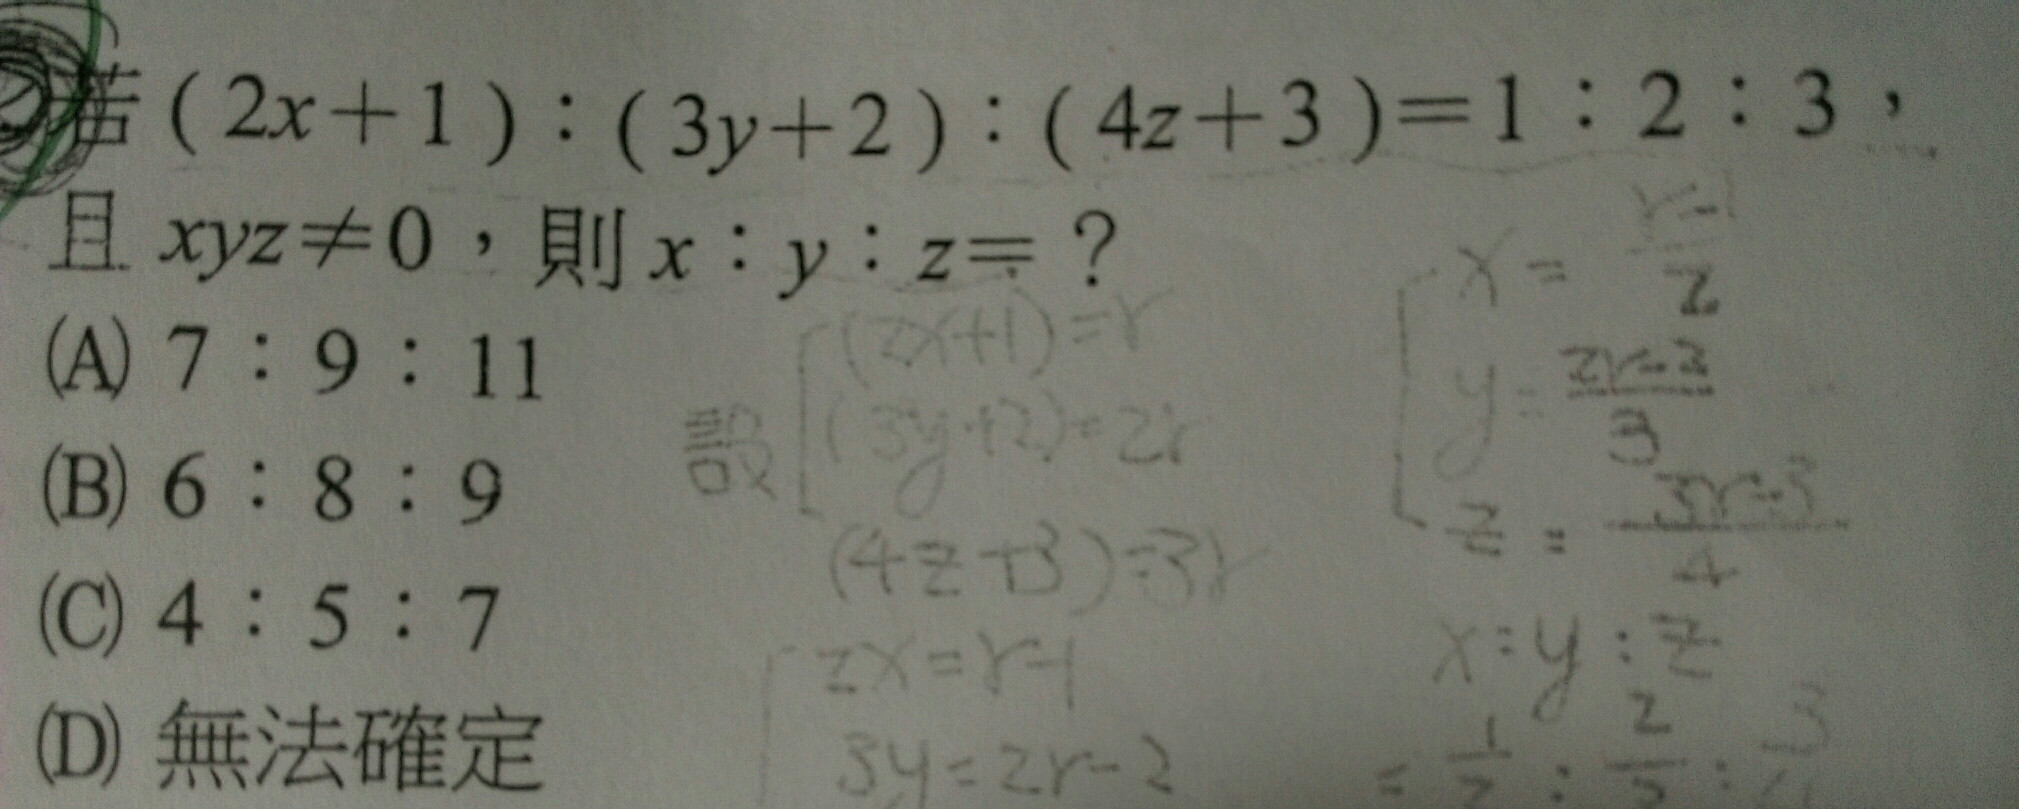 若(2x+1):(3y+2):(4z+3)=1:2:3,
且 xyz≠0,則 x:y:z=?
(A) 7:9:11
(B) 6:8:9
(C) 4:5:7
(D) 無法確定
設
(2x+1)=r
(3y+2)=2r
(4z+3)=3r
2x=r-1
3y=2r-2
x=\frac{r-1}{2}
y=\frac{2r-2}{3}
z=\frac{3r-3}{4}
x:y:z
=\frac{1}{2}:\frac{2}{3}: